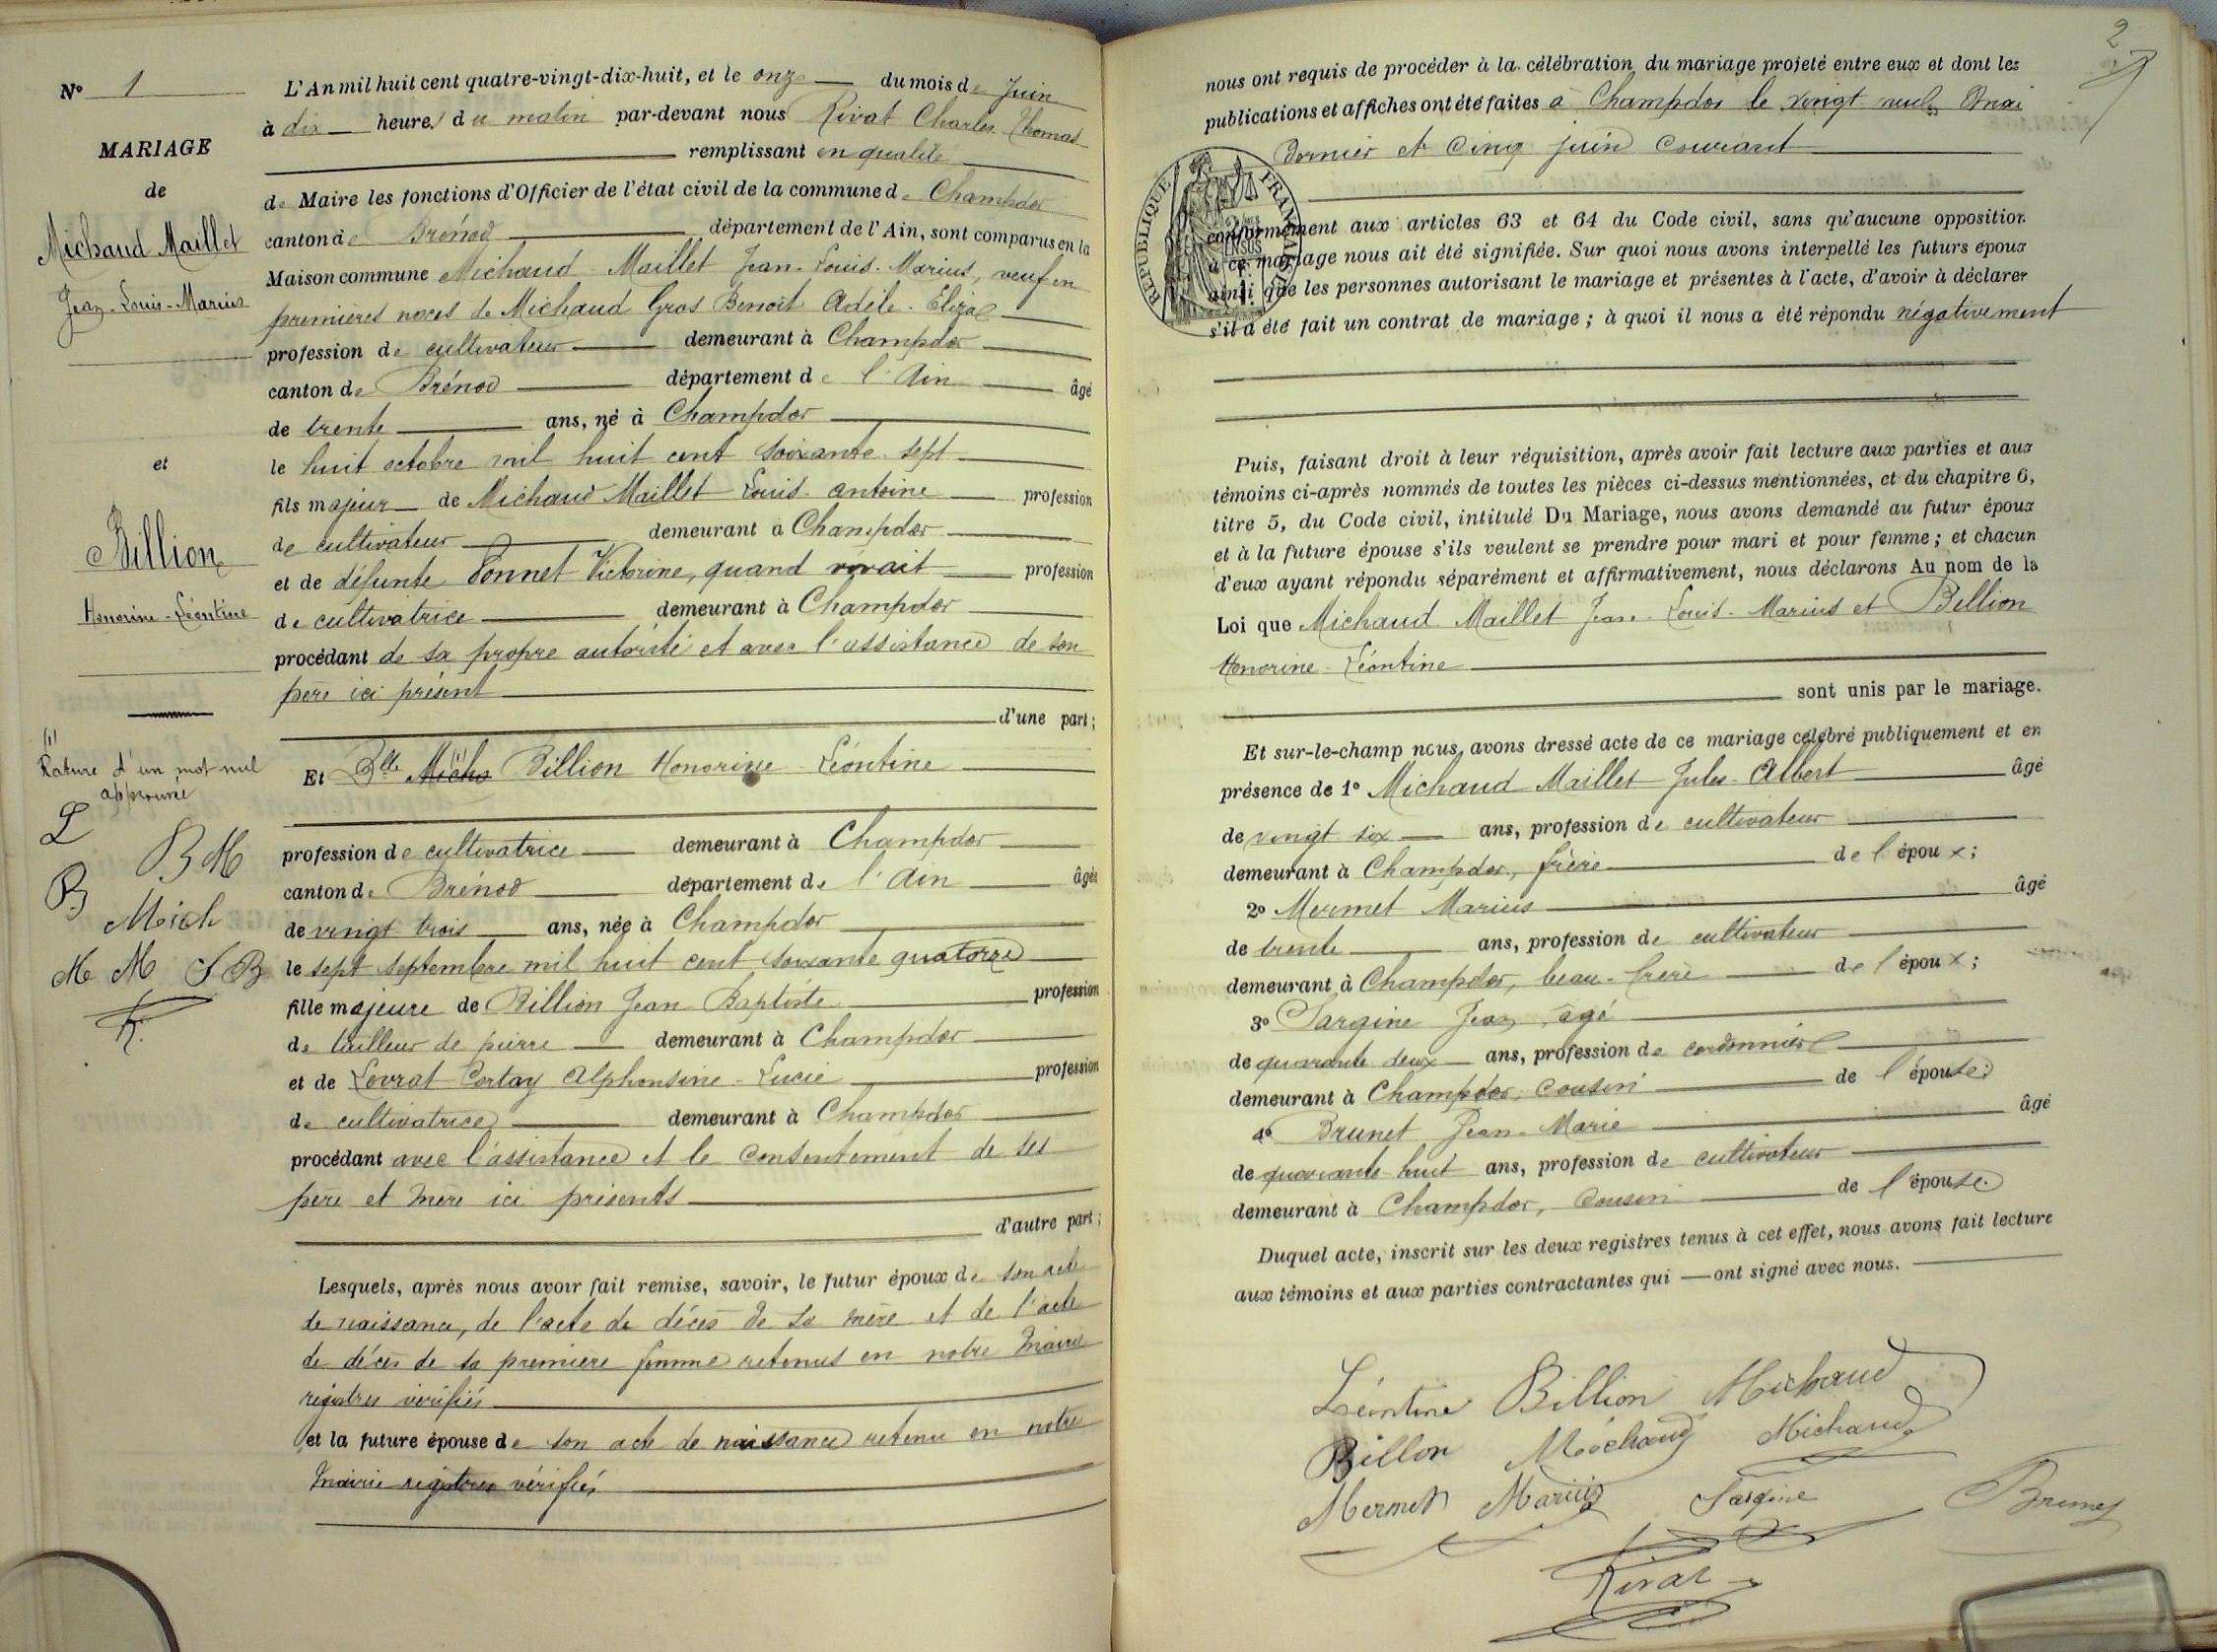 N° 1
MARIAGE
de
Michaud Maillet
Jean-Louis-Marius
et
Billion
Honorine-Léontine
(1)
Rature d'un mot nul
approuvée
L
B M
B
Mich
M M S B
R.
L'An mil huit cent quatre-vingt-dix-huit, et le onze du mois de Juin
à dix heures du matin par-devant nous Rivat Charles Thomas
remplissant en qualité
de Maire les fonctions d'Officier de l'état civil de la commune de Champdor
canton de Brénod département de l'Ain, sont comparus en la
Maison commune Michaud Maillet Jean-Louis-Marius, veuf en
premières noces de Michaud Gros Benoit Adèle-Eliza
profession de cultivateur demeurant à Champdor
canton de Brénod département de l'Ain âgé
de trente ans, né à Champdor
le huit octobre mil huit cent soixante-sept
fils majeur de Michaud Maillet Louis-antoine profession
de cultivateur demeurant à Champdor
et de défunte Tonnet Victorine, quand vivait profession
de cultivatrice demeurant à Champdor
procédant de sa propre autorité et avec l'assistance de son
père ici présent
d'une part;
Et Dlle Micha (1) Billion Honorine-Léontine
profession de cultivatrice demeurant à Champdor
canton de Brénod département de l'Ain âgée
de vingt trois ans, née à Champdor
le sept septembre mil huit cent soixante quatorze
fille majeure de Billion Jean Baptiste profession
de tailleur de pierre demeurant à Champdor
et de Lovrat Cortay Alphonsine-Lucie profession
de cultivatrice demeurant à Champdor
procédant avec l'assistance et le consentement de ses
père et mère ici présents
d'autre part;
Lesquels, après nous avoir fait remise, savoir, le futur époux de son acte
de naissance, de l'acte de décès de sa mère et de l'acte
de décès de sa première femme retenus en notre Mairie
registres vérifiés
et la future épouse de son acte de naissance retenu en notre
Mairie registres vérifiés
2
nous ont requis de procéder à la célébration du mariage projeté entre eux et dont les
publications et affiches ont été faites à Champdor le vingt neuf mai
dernier et cinq juin courant
RÉPUBLIQUE FRANÇAISE
conformément aux articles 63 et 64 du Code civil, sans qu'aucune opposition
à ce mariage nous ait été signifiée. Sur quoi nous avons interpellé les futurs époux
ainsi que les personnes autorisant le mariage et présentes à l'acte, d'avoir à déclarer
s'il a été fait un contrat de mariage; à quoi il nous a été répondu négativement
Puis, faisant droit à leur réquisition, après avoir fait lecture aux parties et aux
témoins ci-après nommés de toutes les pièces ci-dessus mentionnées, et du chapitre 6,
titre 5, du Code civil, intitulé Du Mariage, nous avons demandé au futur époux
et à la future épouse s'ils veulent se prendre pour mari et pour femme; et chacun
d'eux ayant répondu séparément et affirmativement, nous déclarons Au nom de la
Loi que Michaud Maillet Jean-Louis-Marius et Billion
Honorine-Léontine
sont unis par le mariage.
Et sur-le-champ nous avons dressé acte de ce mariage célébré publiquement et en
présence de 1° Michaud Maillet Jules-Albert âgé
de vingt six ans, profession de cultivateur
demeurant à Champdor, frère de l'époux;
2° Mermet Marius âgé
de trente ans, profession de cultivateur
demeurant à Champdor, beau-frère de l'époux;
3° Sargine Jean, âgé
de quarante deux ans, profession de cordonnier
demeurant à Champdor, cousin de l'épouse;
4° Brunet Jean-Marie âgé
de quarante huit ans, profession de cultivateur
demeurant à Champdor, cousin de l'épouse.
Duquel acte, inscrit sur les deux registres tenus à cet effet, nous avons fait lecture
aux témoins et aux parties contractantes qui — ont signé avec nous.
Léontine Billion Michaud
Billon Michaud Michaud
Mermet Marius Sargine Brunet
Rivat